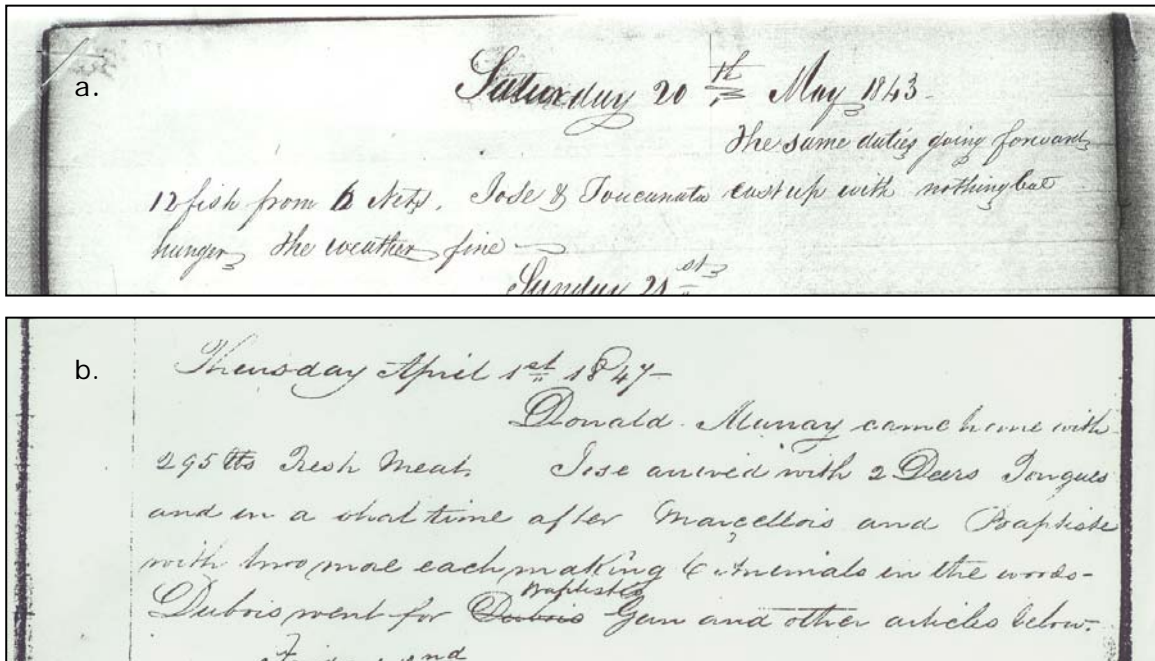 a.
Saturday 20th May 1843-
The same duties going forward
12 fish from 6 Nets. Jose & Toucanata cast up with nothing but
hunger the weather fine
Sunday 21st
b.
Thursday April 1st 1847-
Donald Murray came home with
295 lbs Fresh Meat Jose arrived with 2 Deers Tongues
and in a short time after Marcellois and Baptiste
with two more each making 6 Animals in the woods-
Baptistes
Dubois went for Dubois Gun and other articles below.
2nd